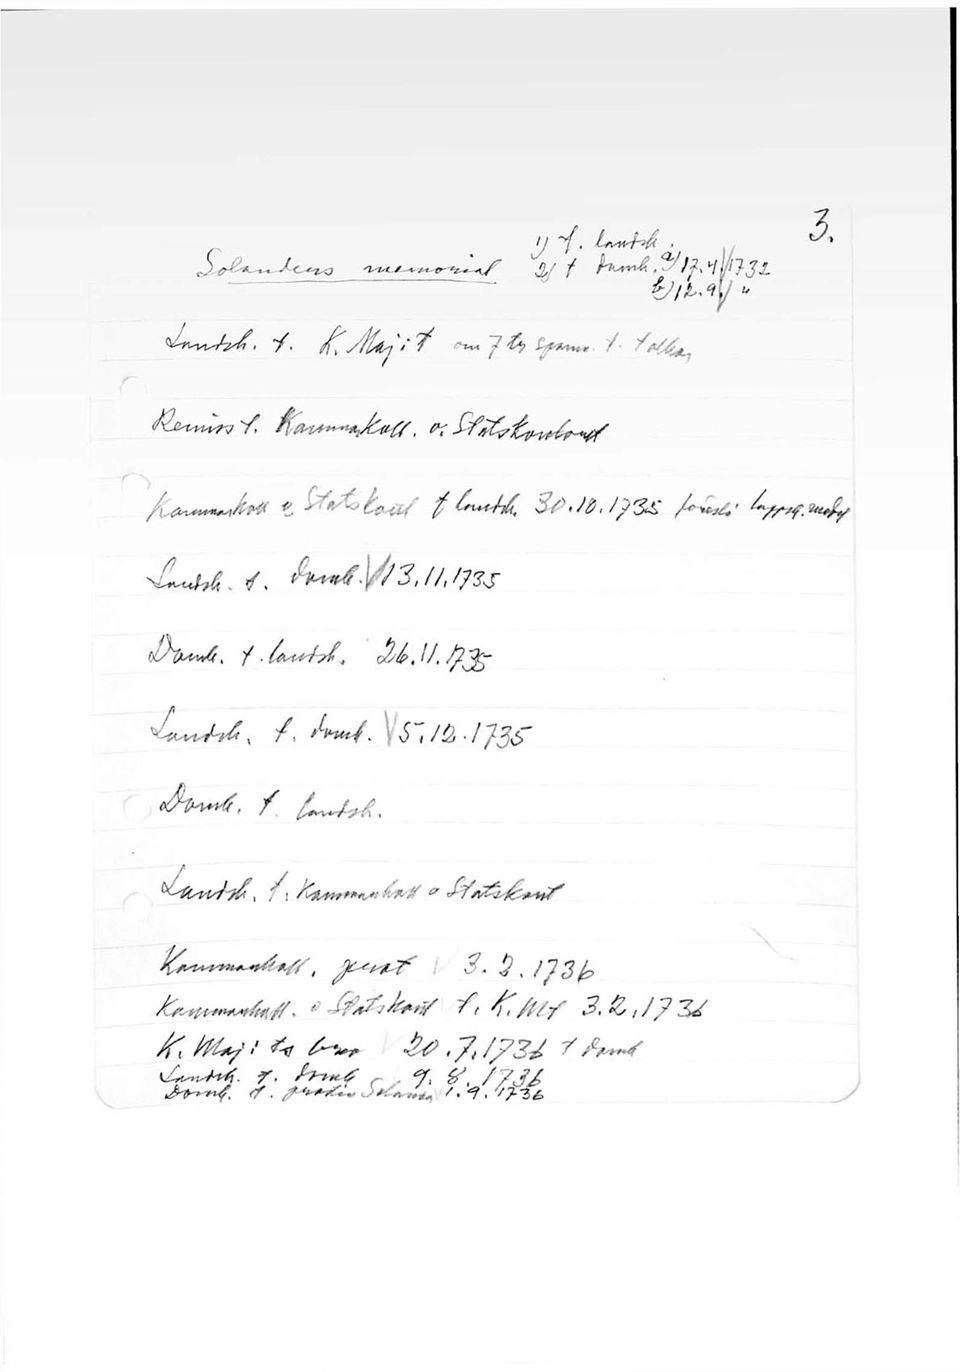 3.
1) t. landsh.
Solanders memorial 2) t domk. a) 17.4.1732
b) 12.9. "
Landsh. t. K. Maj:t om 7 t. tolkar
Remiss t. Kammarkoll. o. Statskontoret
Kammarkoll o Statskont t landsh. 30.10.1735 föreslå
Landsh. t. domk. 13.11.1735
Domk. t. landsh. 26.11.1735
Landsh. t. domk. 5.12.1735
Domk. t. landsh.
Landsh. t. Kammarkoll o Statskont
Kammarkoll. 3.2.1736
Kammarkoll. o Statskont t. K. Mt 3.2.1736
K. Maj:ts brev 20.7.1736 t domk
Landsh. t. domk 9.8.1736
Domk. t. 1.9.1736